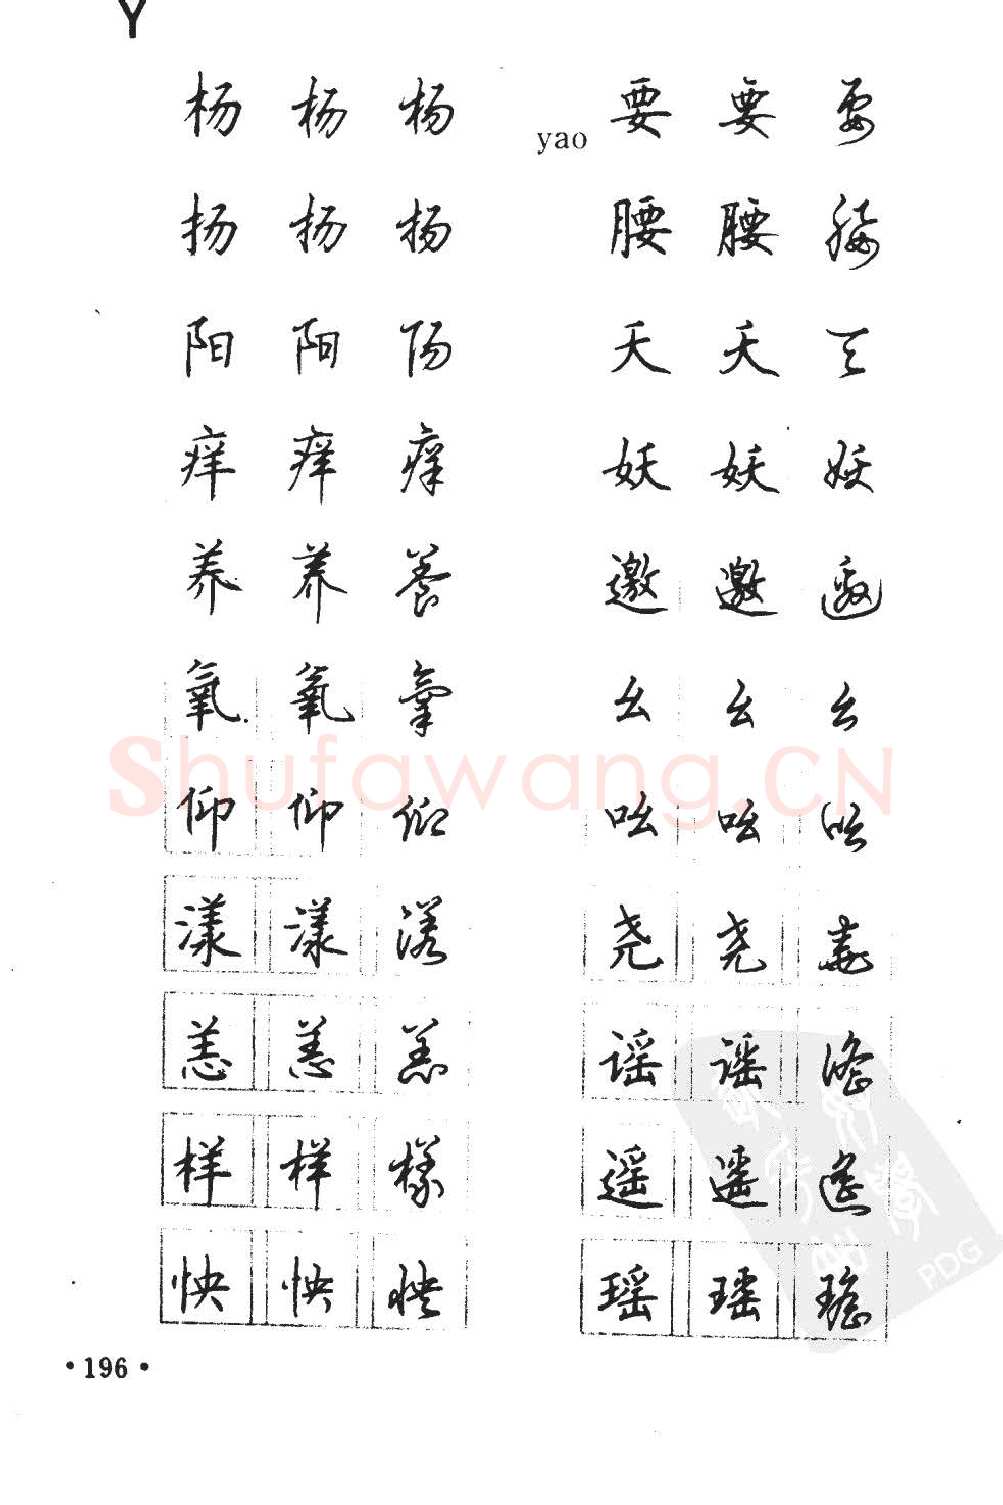 Y
杨 杨 杨
扬 扬 扬
阳 阳 阳
痒 痒 痒
养 养 養
氧 氧 氧
仰 仰 仰
漾 漾 漾
恙 恙 恙
样 样 樣
怏 怏 怏
yao
要 要 要
腰 腰 腰
夭 夭 夭
妖 妖 妖
邀 邀 邀
幺 幺 幺
吆 吆 吆
尧 尧 堯
谣 谣 謠
遥 遥 遙
瑶 瑶 瑤
Shufawang.CN
PDG
·196·